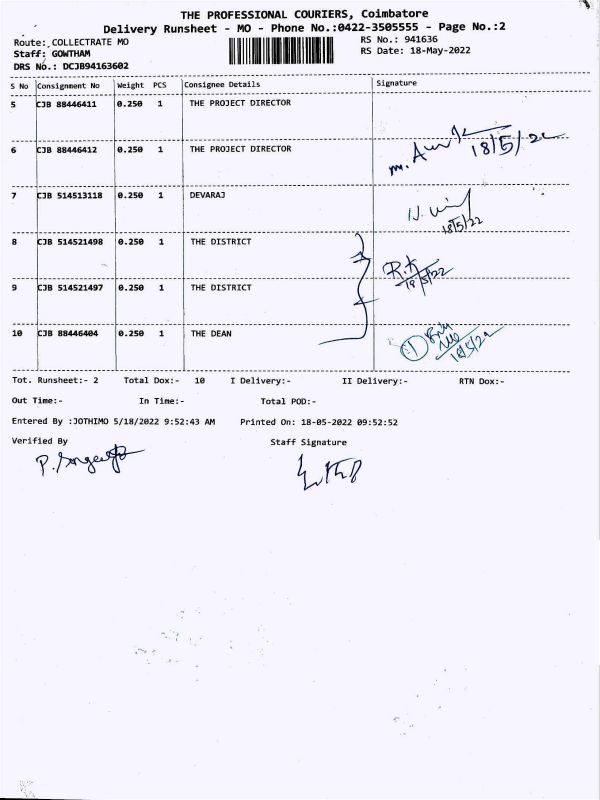 THE PROFESSIONAL COURIERS, Coimbatore
Delivery Runsheet - MO - Phone No.:0422-3505555 - Page No.:2
Route: COLLECTRATE MO
RS No.: 941636
Staff: GOWTHAM
RS Date: 18-May-2022
DRS No.: DCJB94163602
S No Consignment No Weight PCS Consignee Details Signature
5 CJB 88446411 0.250 1 THE PROJECT DIRECTOR
6 CJB 88446412 0.250 1 THE PROJECT DIRECTOR
18/5/22
7 CJB 514513118 0.250 1 DEVARAJ
18/5/22
8 CJB 514521498 0.250 1 THE DISTRICT
R.K
18/5/22
9 CJB 514521497 0.250 1 THE DISTRICT
10 CJB 88446404 0.250 1 THE DEAN
1
18/5/22
Tot. Runsheet:- 2 Total Dox:- 10 I Delivery:- II Delivery:- RTN Dox:-
Out Time:- In Time:- Total POD:-
Entered By :JOTHIMO 5/18/2022 9:52:43 AM Printed On: 18-05-2022 09:52:52
Verified By Staff Signature